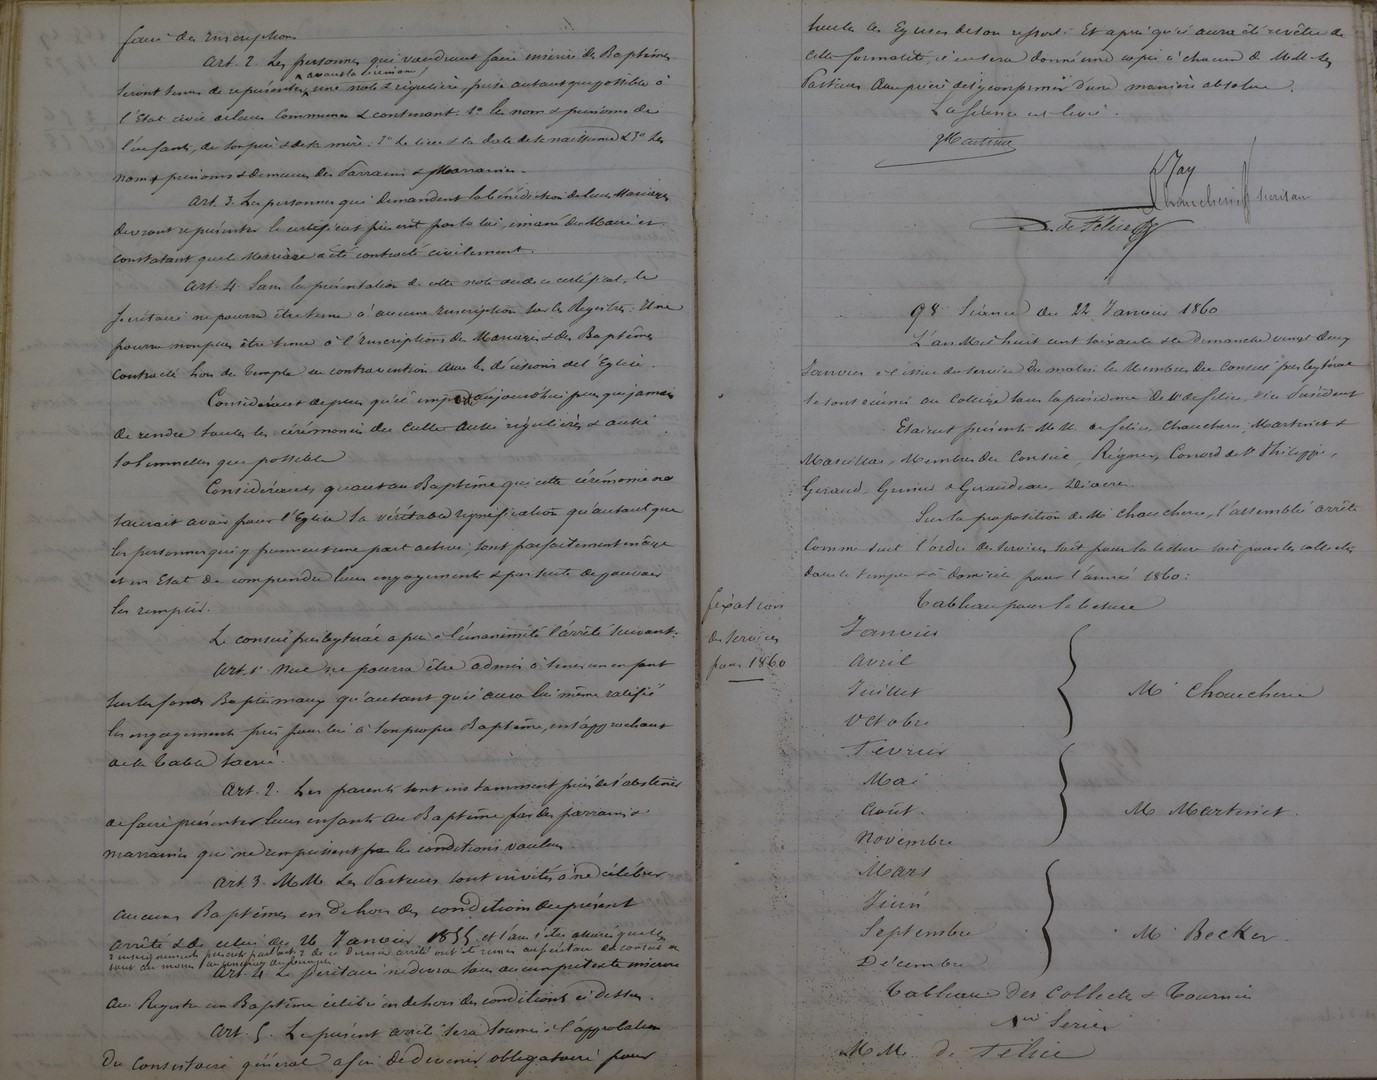 faire des Inscriptions
Art. 2. Les personnes qui voudront faire inscrire des Baptêmes
seront tenues de représenter, avant la cérémonie, une note régulière, prise autant que possible à
l'Etat civil de leurs Communes & contenant: 1º les noms & prénoms de
l'enfant, de son père & de sa mère: 2º le lieu & la date de la naissance & 3º les
noms, prénoms & demeures des Parrains & Marraines.
Art. 3. Les personnes qui demandent la bénédiction de leur Mariage
devront représenter le certificat prescrit par la loi, émané du Maire et
constatant que le Mariage a été contracté civilement.
Art. 4. Sans la présentation de cette note ou de ce certificat, le
Secrétaire ne pourra être tenu à aucune Inscription sur les Registres. Il ne
pourra non plus être tenu à l'Inscription des Mariages & des Baptêmes
contracté hors du Temple en contravention avec les décisions de l'Eglise.
Considérant de plus qu'il importe aujourd'hui plus que jamais
de rendre toutes les cérémonies du culte aussi régulières & aussi
solennelles que possible
Considérant quant au Baptême que cette cérémonie ne
saurait avoir pour l'Eglise sa véritable signification qu'autant que
les personnes qui y prennent une part active, sont parfaitement
et en Etat de comprendre leurs engagements & par suite de pouvoir
les remplir.
Le conseil presbytéral a pris à l'unanimité l'arrêté suivant:
Art. 1er Nul ne pourra être admis à tenir un enfant
sur les fonts Baptismaux qu'autant qu'il aura lui même ratifié
les engagements pris pour lui à son propre Baptême, en s'approchant
de la Table sacrée.
Art. 2. Les parents sont instamment priés de s'abstenir
de faire présenter leurs enfants au Baptême par des parrains &
marraines qui ne remplissent pas les conditions voulues
Art. 3. MM. les Pasteurs sont invités à ne célébrer
aucuns Baptêmes en dehors des conditions du présent
arrêté & de celui du 26 Janvier 1855 et sans s'être assurés que les
renseignements prescrits par l'art. 2 de ce dernier arrêté ont été remis au secrétaire du conseil
Art. 4 Le secrétaire ne devra sous aucun prétexte inscrire
au Registre un Baptême célébré en dehors des conditions ci dessus.
Art. 5. Le présent arrêté sera soumis à l'approbation
du Consistoire général afin de devenir obligatoire pour
toutes les Eglises de son ressort. Et après qu'il aura été revêtu de
cette formalité, il en sera donné une copie à chacun de MM. les
Pasteurs avec prière de s'y conformer d'une manière absolue.
La séance est levée.
Martinet
Jay
Chaucherie secrétaire
D. de Félice
98. Séance du 22 Janvier 1860
L'an Mil huit cent soixante & le dimanche vingt deux
Janvier à l'issue du service du matin les Membres du Conseil presbytéral
se sont réunis au Collège sous la présidence de Mr de Félice, Vice Président
Etaient présents MM. de Félice, Chaucherie, Martinet &
Marcillac, Membres du Conseil, Régnier, Conord de St Philippe,
Geraud, Grenier & Geraudeau, Diacres.
Sur la proposition de Mr Chaucherie, l'assemblée arrête
comme suit l'ordre de service soit pour la lecture soit pour les collectes
dans le temple & à domicile pour l'année 1860:
fixation
des services
pour 1860
Tableau pour la lecture
Janvier
Avril
Juillet
Octobre
Mr Chaucherie
Fevrier
Mai
Août
Novembre
M Martinet
Mars
Juin
Septembre
Décembre
M. Becker
Tableau des Collectes & Tournées
1ère Serie
MM. de Félice